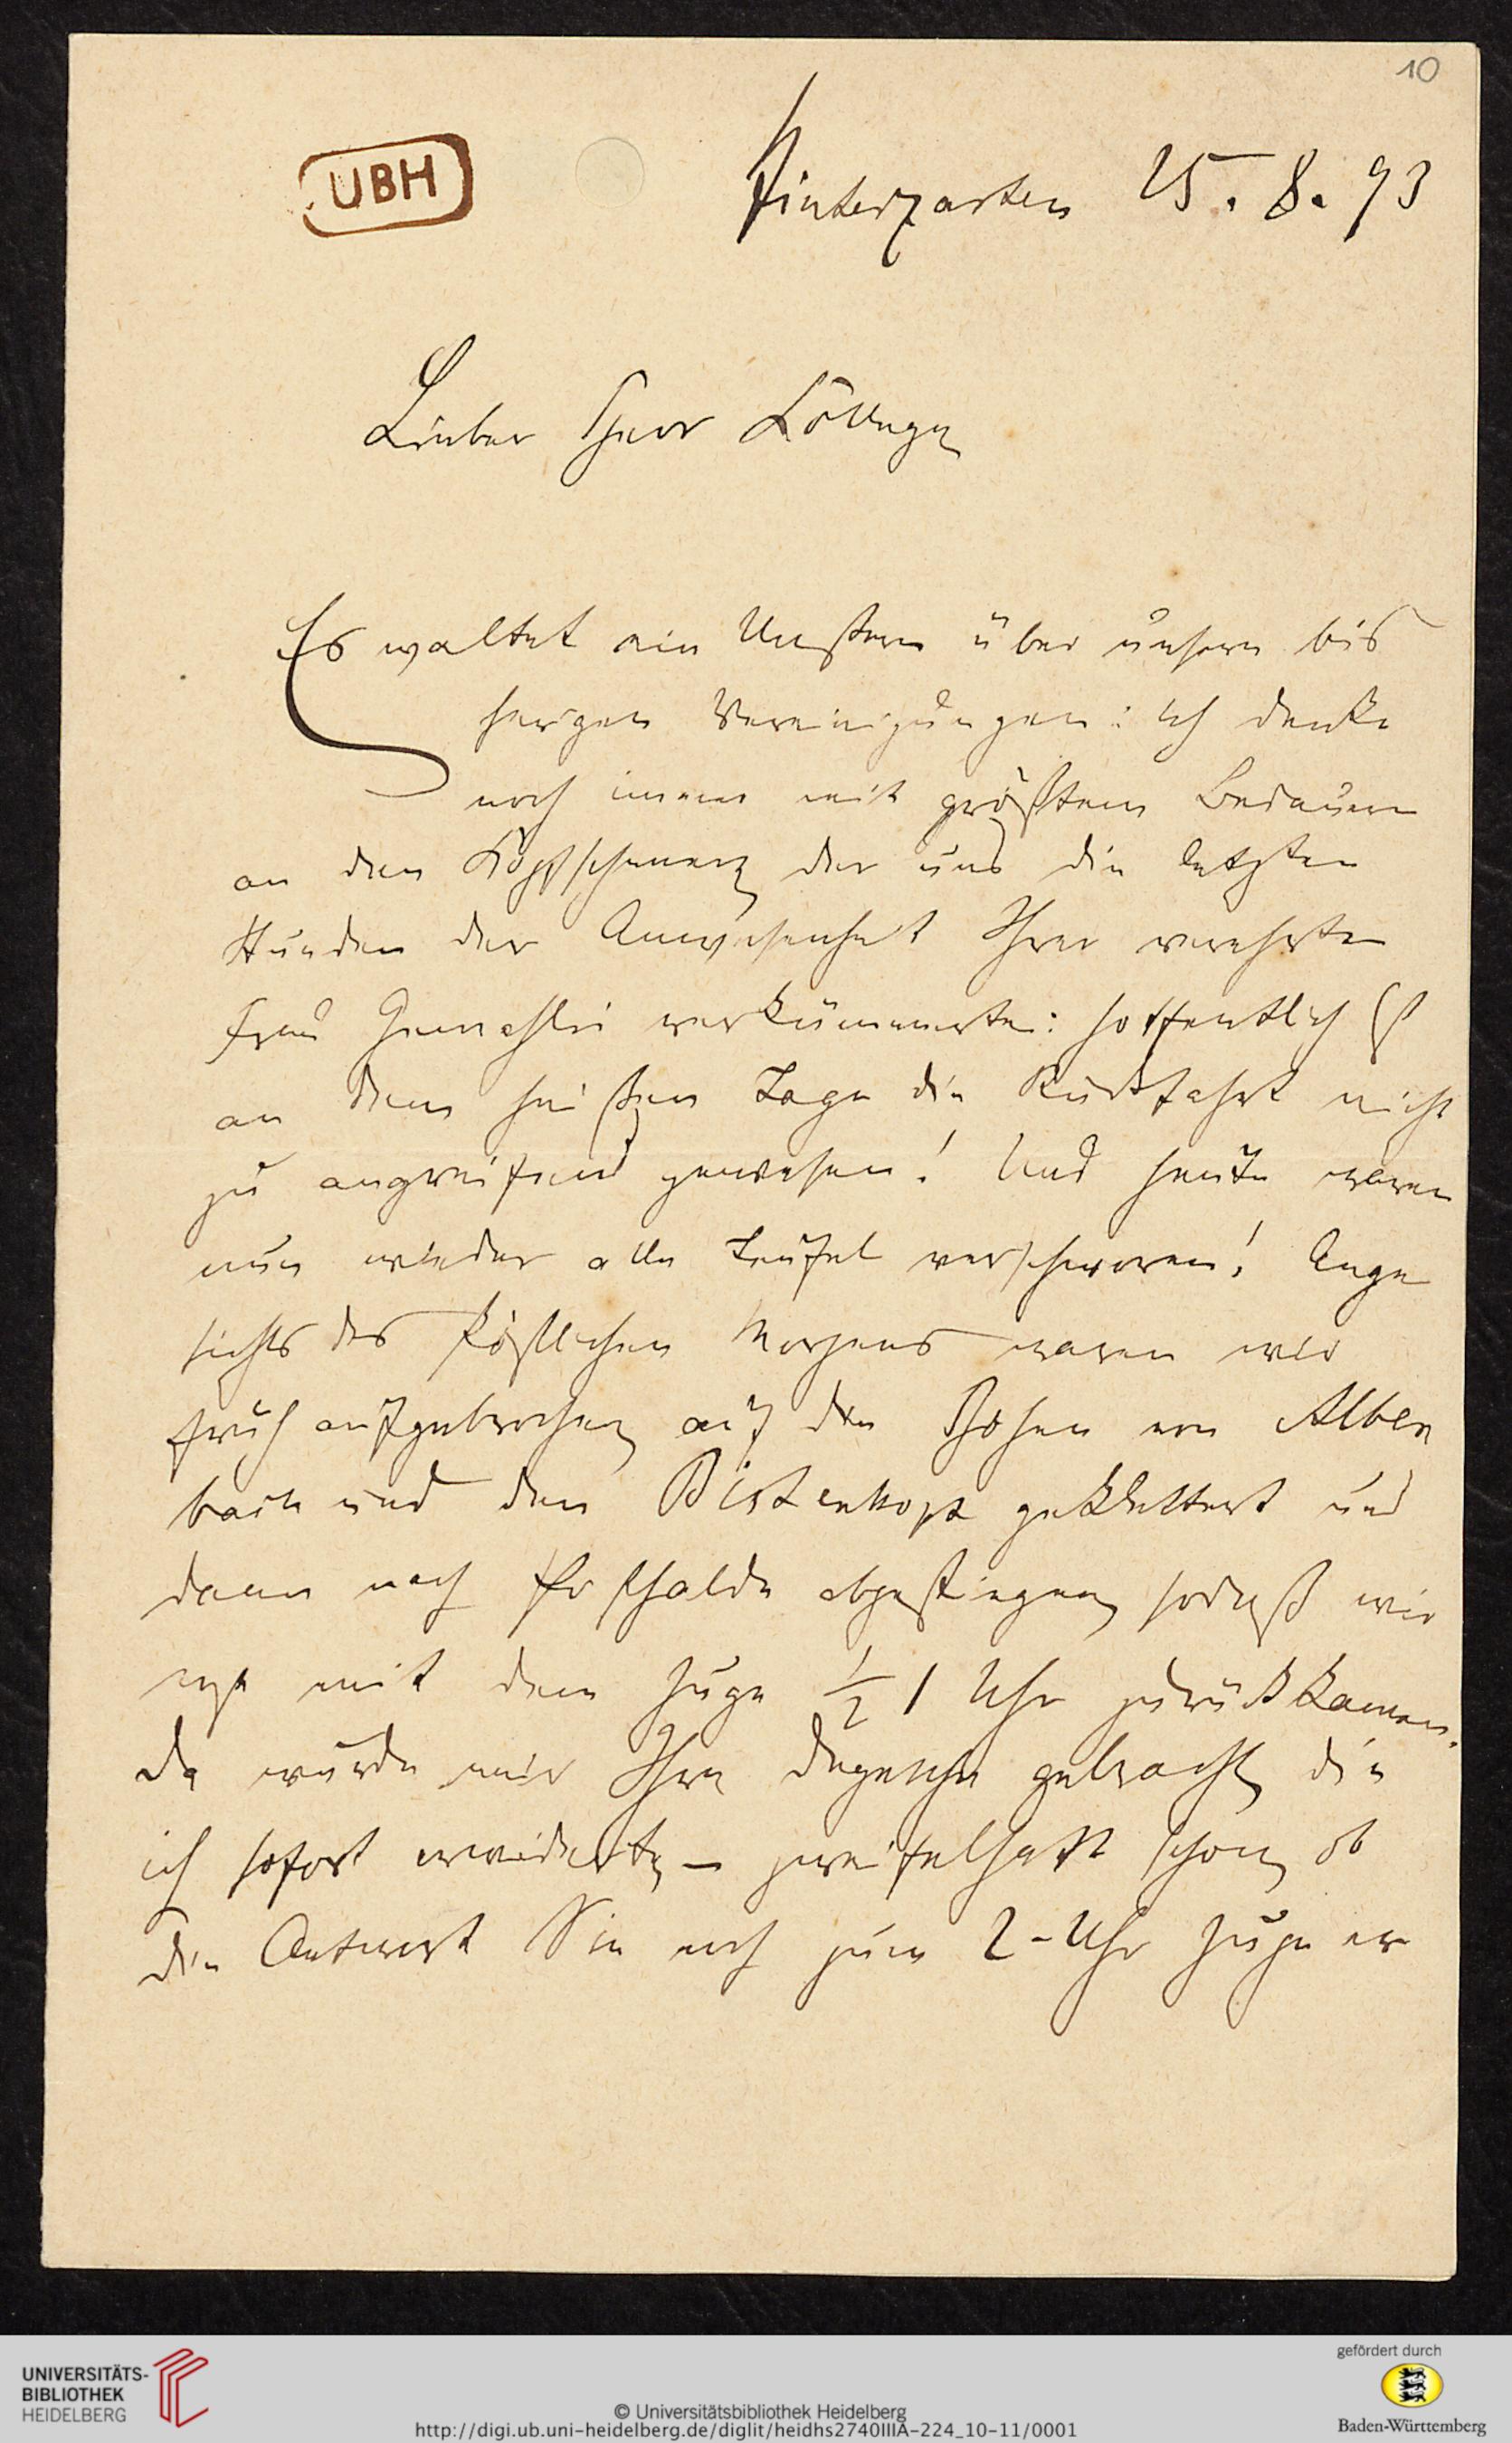 10
UBH
Hinterzarten 25. 8. 93
Lieber Herr College
Es waltet ein Unstern über unsern bis
herigen Vereinigungen: ich denke
noch immer mit größtem Bedauern
an den Kopfschmerz der uns die letzten
Stunden der Anwesenheit Ihrer verehrten
Frau Gemahlin verkümmerte: hoffentlich ist
an dem heißen Tage die Rückfahrt nicht
zu angreifend gewesen! Und heute waren
nun wieder alle Teufel verschworen! Ange
sichts des köstlichen Morgens waren wir
früh aufgebrochen, auf den Höhen von Alben
bach und den Bistenkopf geklettert und
dann nach Posthalde abgestiegen, sodaß wir
erst mit dem Zuge ½ 1 Uhr zurückkamen.
Da wurde mir Ihre Depesche gebracht, die
ich sofort erwiderte, – zweifelhaft schon, ob
die Antwort Sie noch zum 2-Uhr Zuge er
UNIVERSITÄTS-
BIBLIOTHEK
HEIDELBERG
© Universitätsbibliothek Heidelberg
http://digi.ub.uni-heidelberg.de/diglit/heidhs2740IIIA-224_10-11/0001
gefördert durch
Baden-Württemberg